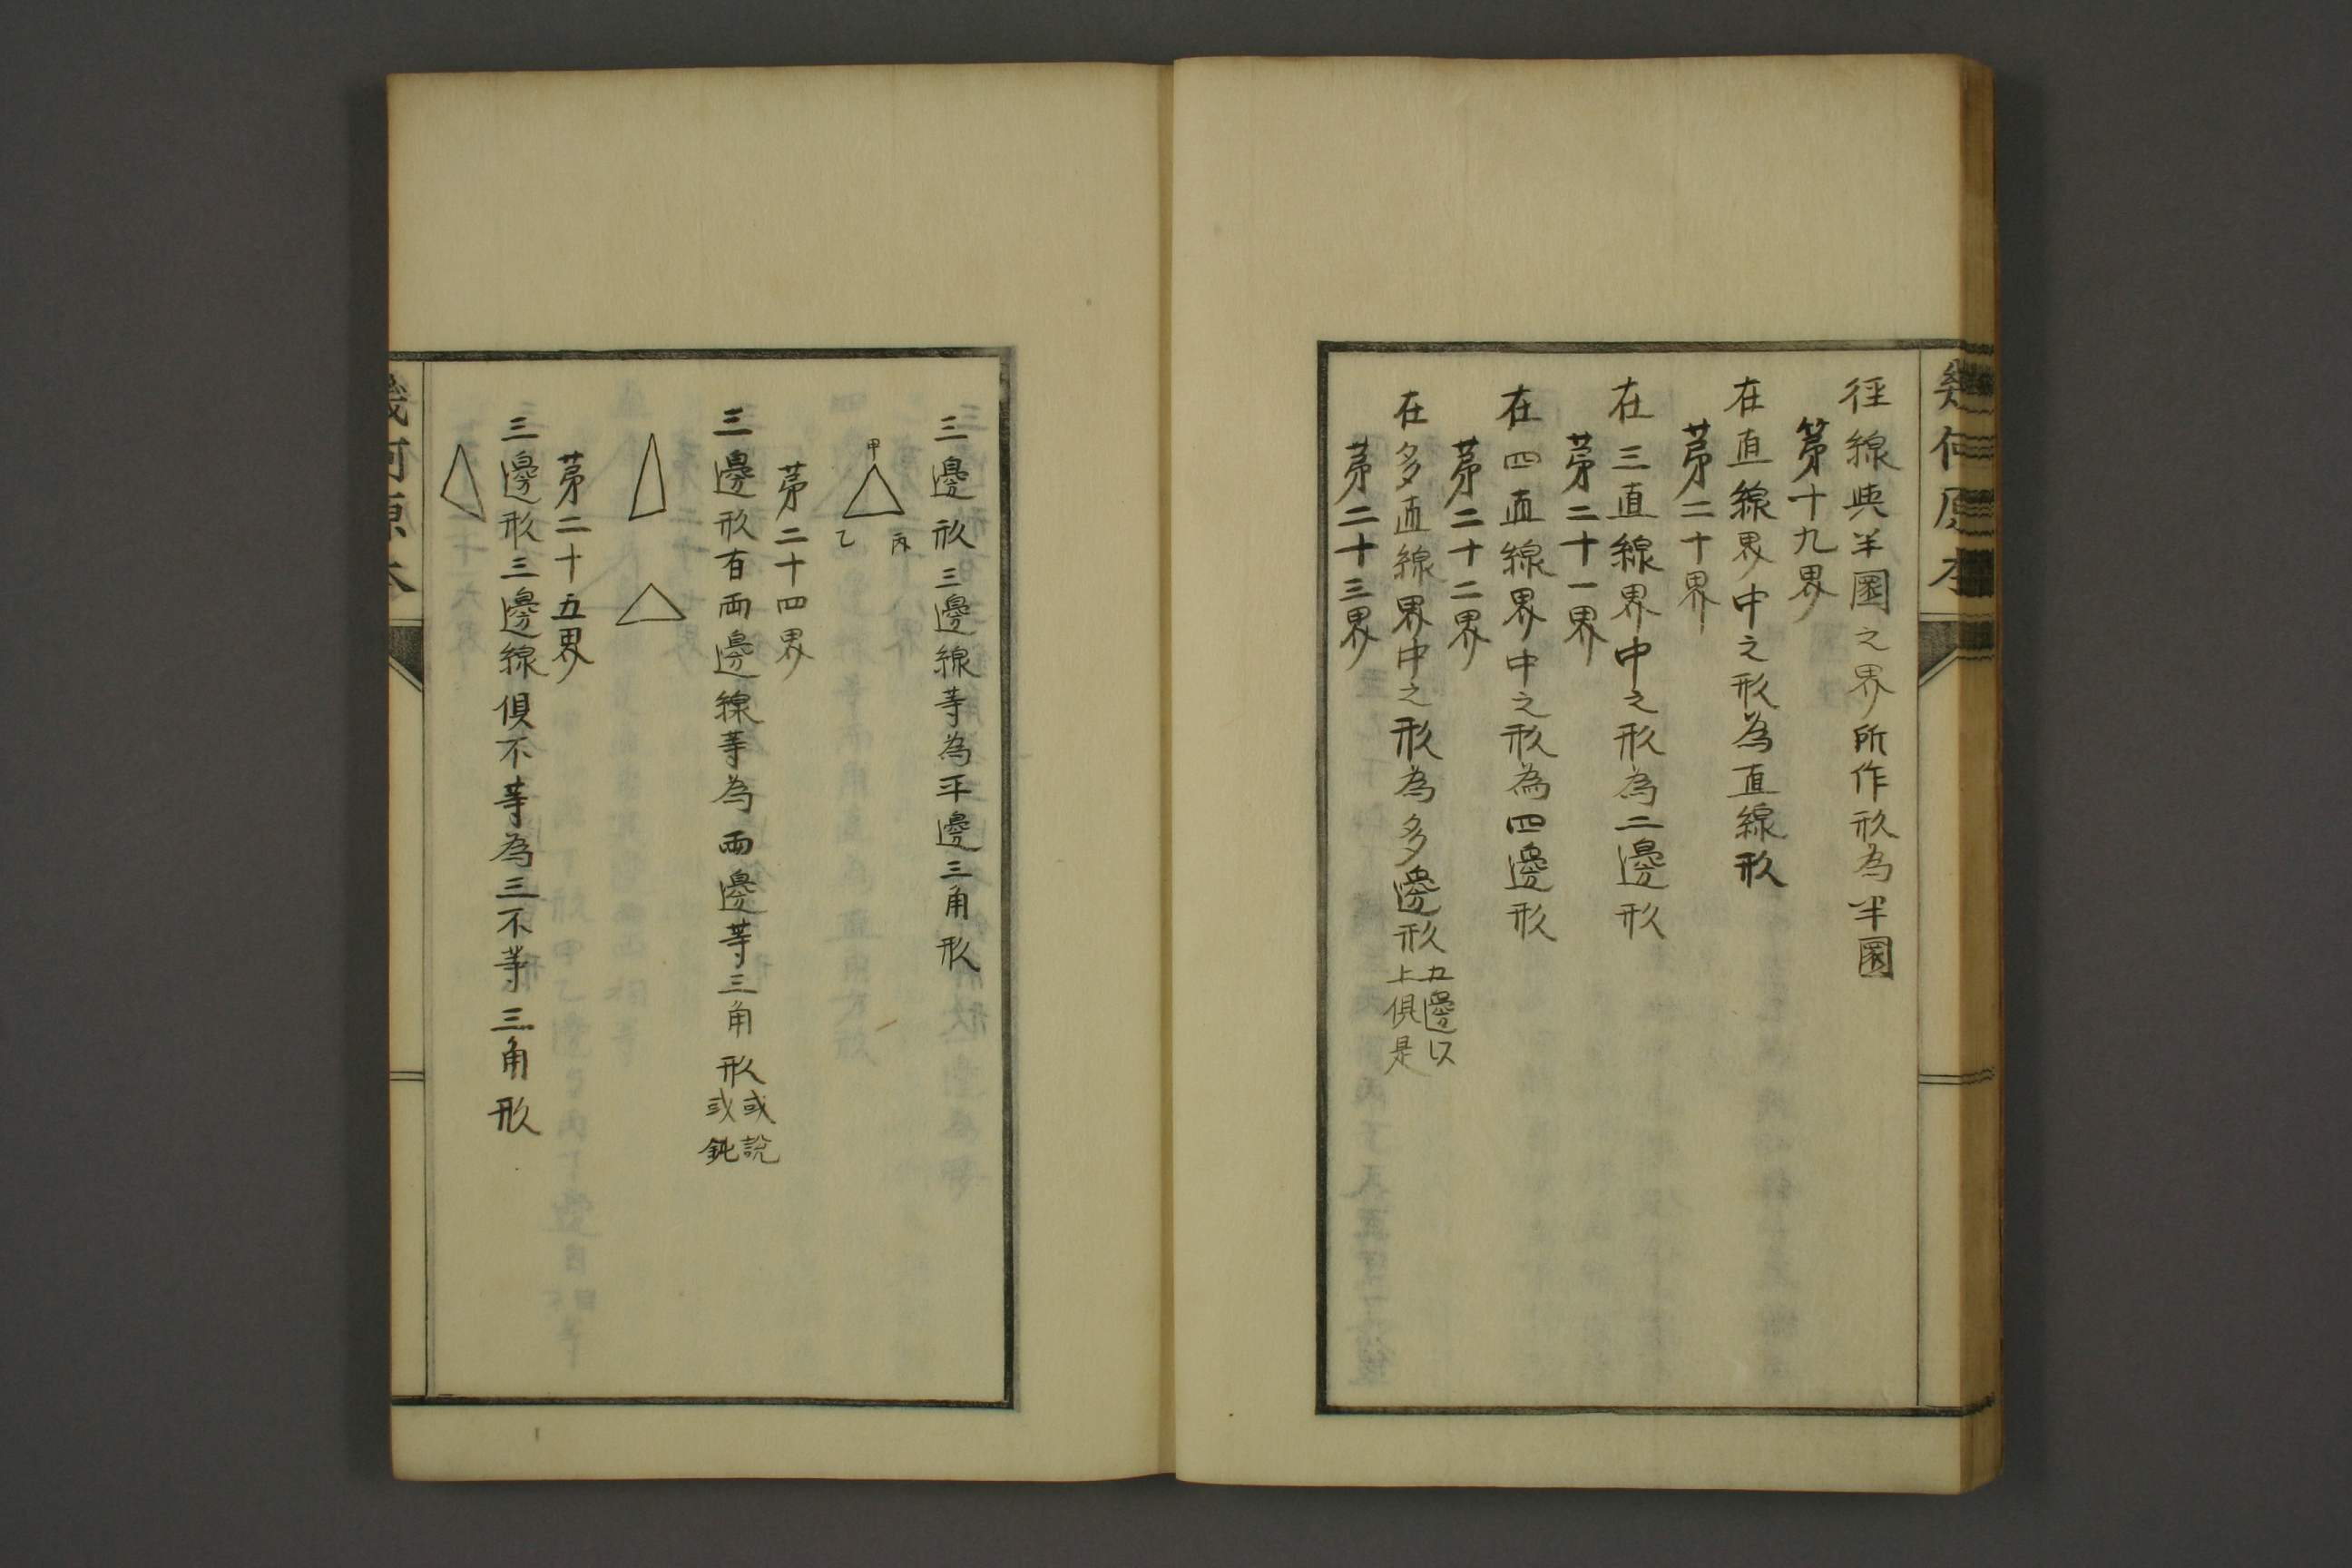 幾何原本
徑線與半圜之界所作形為半圜
第十九界
在直線界中之形為直線形
苐二十界
在三直線界中之形為二邊形
苐二十一界
在四直線界中之形為四邊形
苐二十二界
在多直線界中之形為多邊形五邊以
上俱是
苐二十三界
三邊形三邊線等為平邊三角形
甲
丙
乙
苐二十四界
三邊形有兩邊線等為兩邊等三角形或說
或鈍
苐二十五界
三邊形三邊線俱不等為三不等三角形
幾何原本